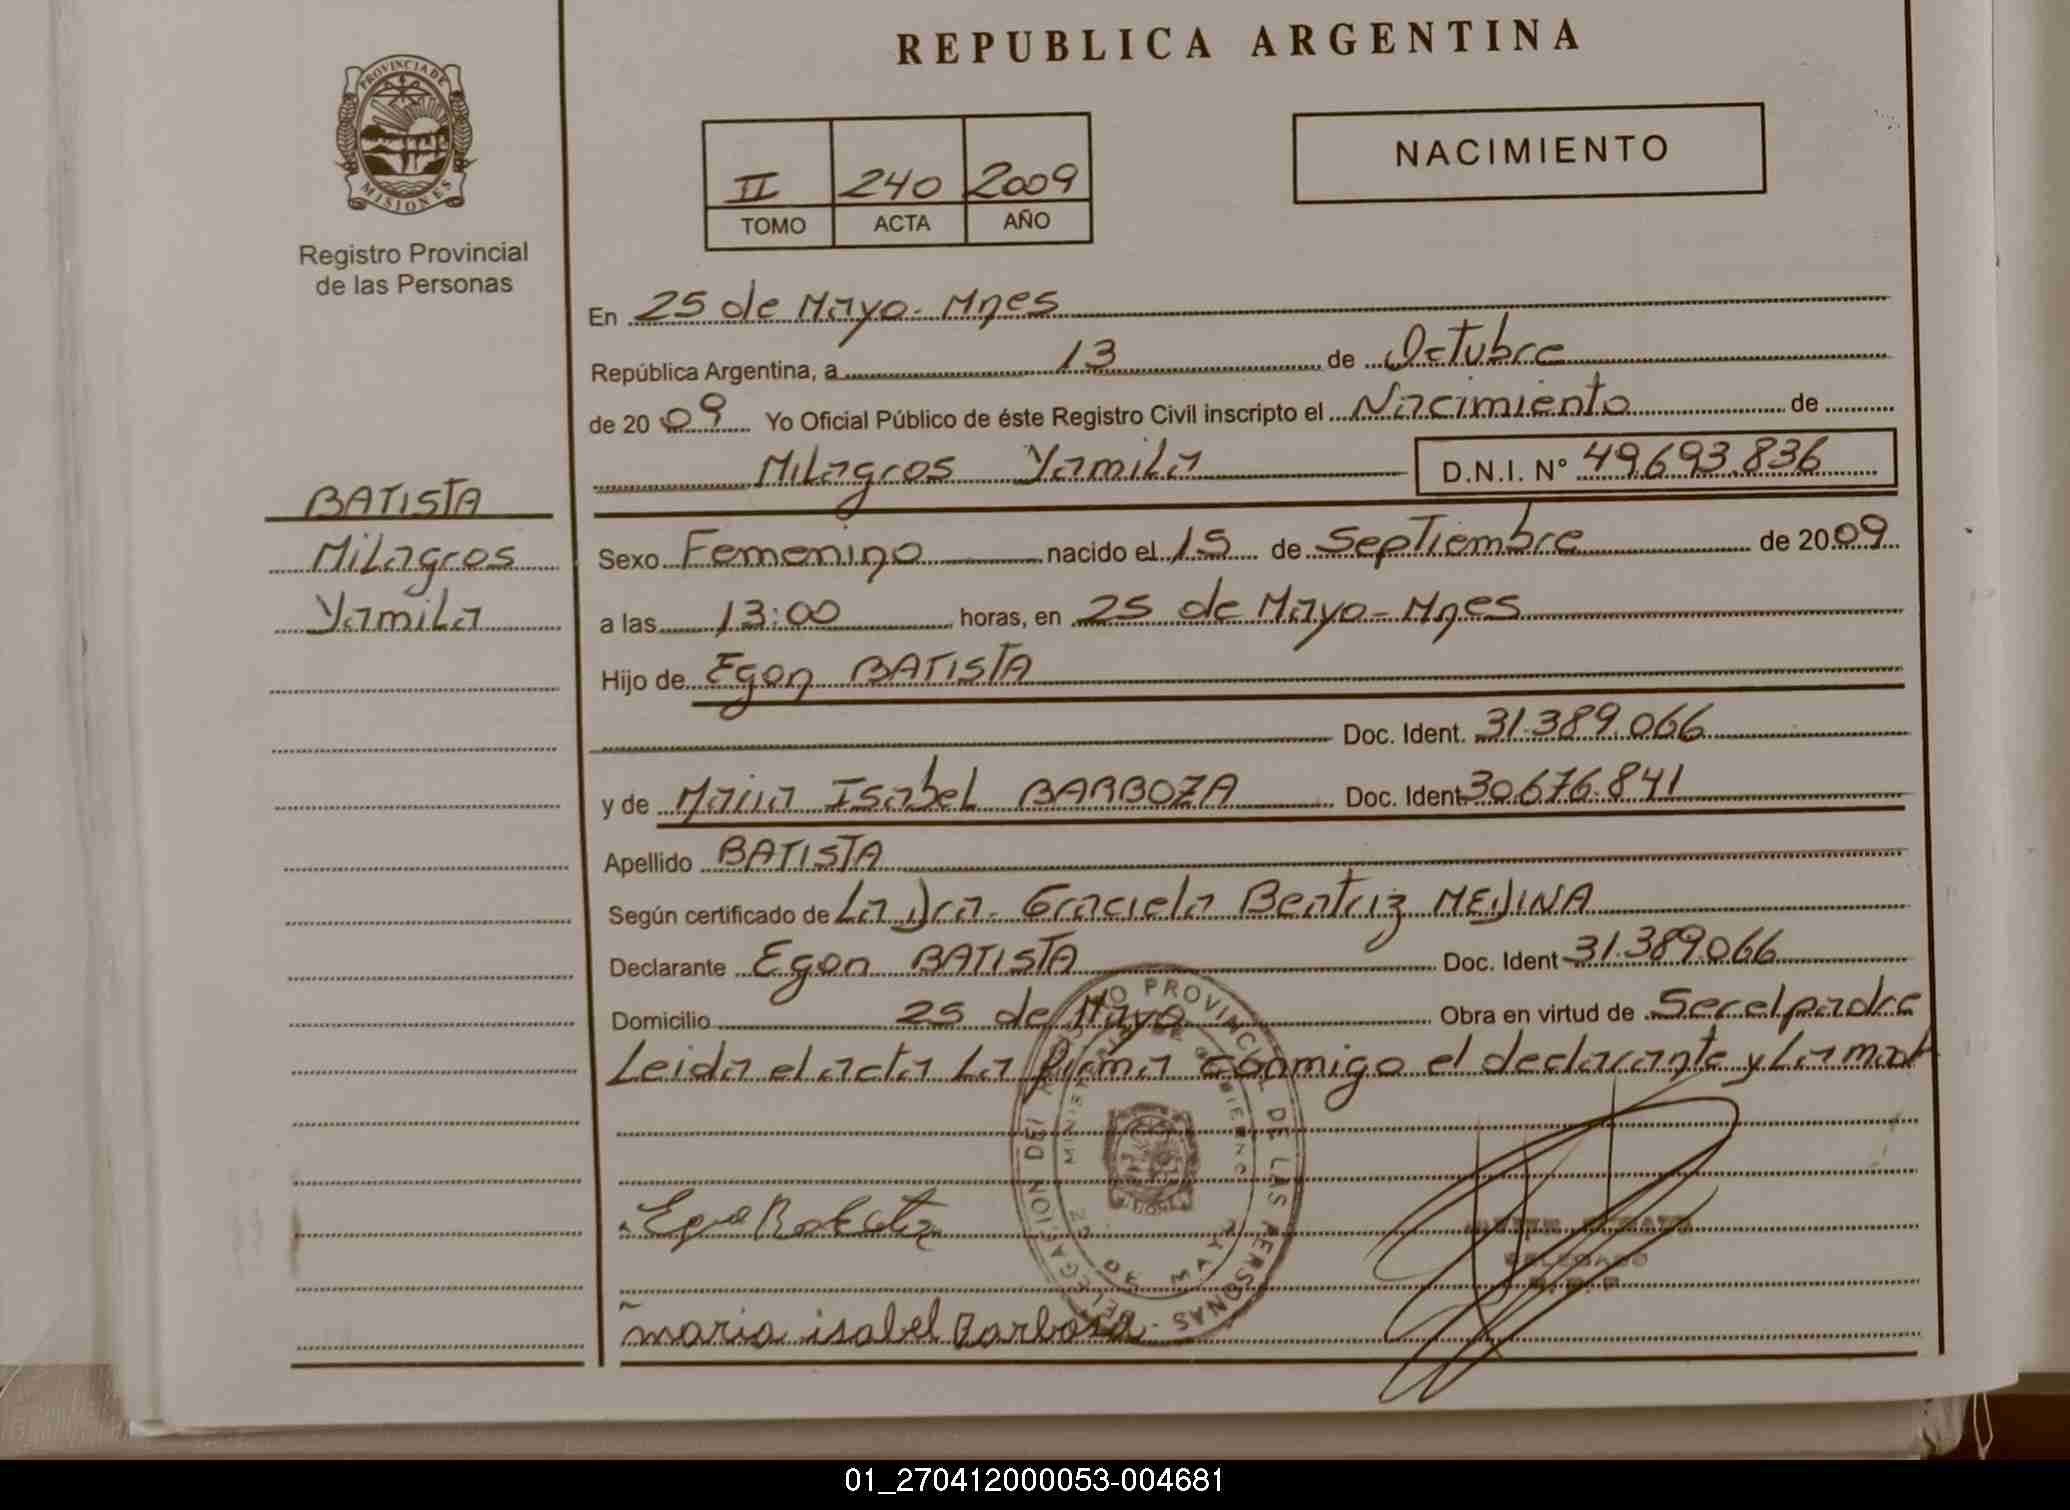 REPUBLICA ARGENTINA
PROVINCIA DE
MISIONES
Registro Provincial
de las Personas
II 240 2009
TOMO ACTA AÑO
NACIMIENTO
En 25 de Mayo - Mnes
República Argentina, a 13 de Octubre
de 2009 Yo Oficial Público de éste Registro Civil inscripto el Nacimiento de
Milagros Yamila D.N.I. Nº 49.693.836
BATISTA
Milagros
Yamila
Sexo Femenino nacido el 15 de Septiembre de 2009
a las 13:00 horas, en 25 de Mayo - Mnes
Hijo de Egon BATISTA
Doc. Ident. 31.389.066
y de Maria Isabel BARBOZA Doc. Ident 30.676.841
Apellido BATISTA
Según certificado de La Dra. Graciela Beatriz MEDINA
Declarante Egon BATISTA Doc. Ident 31.389.066
Domicilio 25 de Mayo Obra en virtud de Ser el padre
Leida el acta La firma conmigo el declarante y La mad
DELEGACION DEL REGISTRO PROVINCIAL DE LAS PERSONAS
MINISTERIO DE GOBIERNO
MISIONES
25 DE MAYO
DELEGADO
maria isabel Barboza
01_270412000053-004681